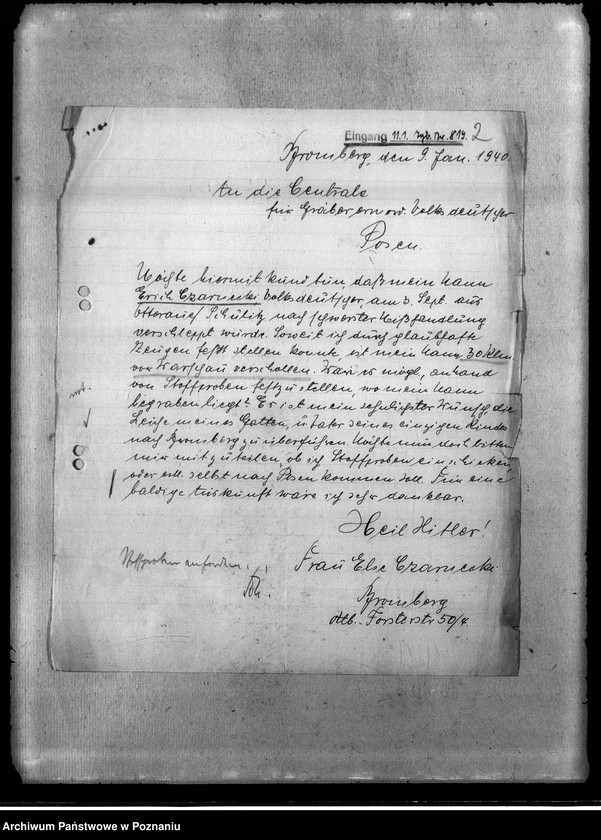 Eingang 11.1. Tgb. Nr. 819. 2
Bromberg, den 9. Jan. 1940.
An die Centrale
für Gräber erm ord. Volksdeutscher
Posen.
Möchte hiermit kund tun, daß mein Mann
Erich Czarnecki Volksdeutscher, am 3. Sept. aus
Otteraue/ Schulitz nach schwerster Mißhandlung
verschleppt wurde. Soweit ich durch glaubhafte
Zeugen festst stellen konnte, ist mein Mann 30 Klm.
von Warschau verschollen. Wäre es mögl. anhand
von Stoffproben festzustellen, wo mein Mann
begraben liegt? Es ist mein sehnlichster Wunsch, die
Leiche meines Gatten, u. Vater seines einzigen Kindes
nach Bromberg zu überführen. Möchte nun doch bitten
mir mitzuteilen, ob ich Stoffproben einschicken,
oder evtl. selbst nach Posen kommen soll. Für eine
baldige Auskunft wäre ich sehr dankbar.
Heil Hitler!
Stoffproben anfordern.
Frau Else Czarnecki
Bromberg
Försterstr 50/4.
Archiwum Państwowe w Poznaniu